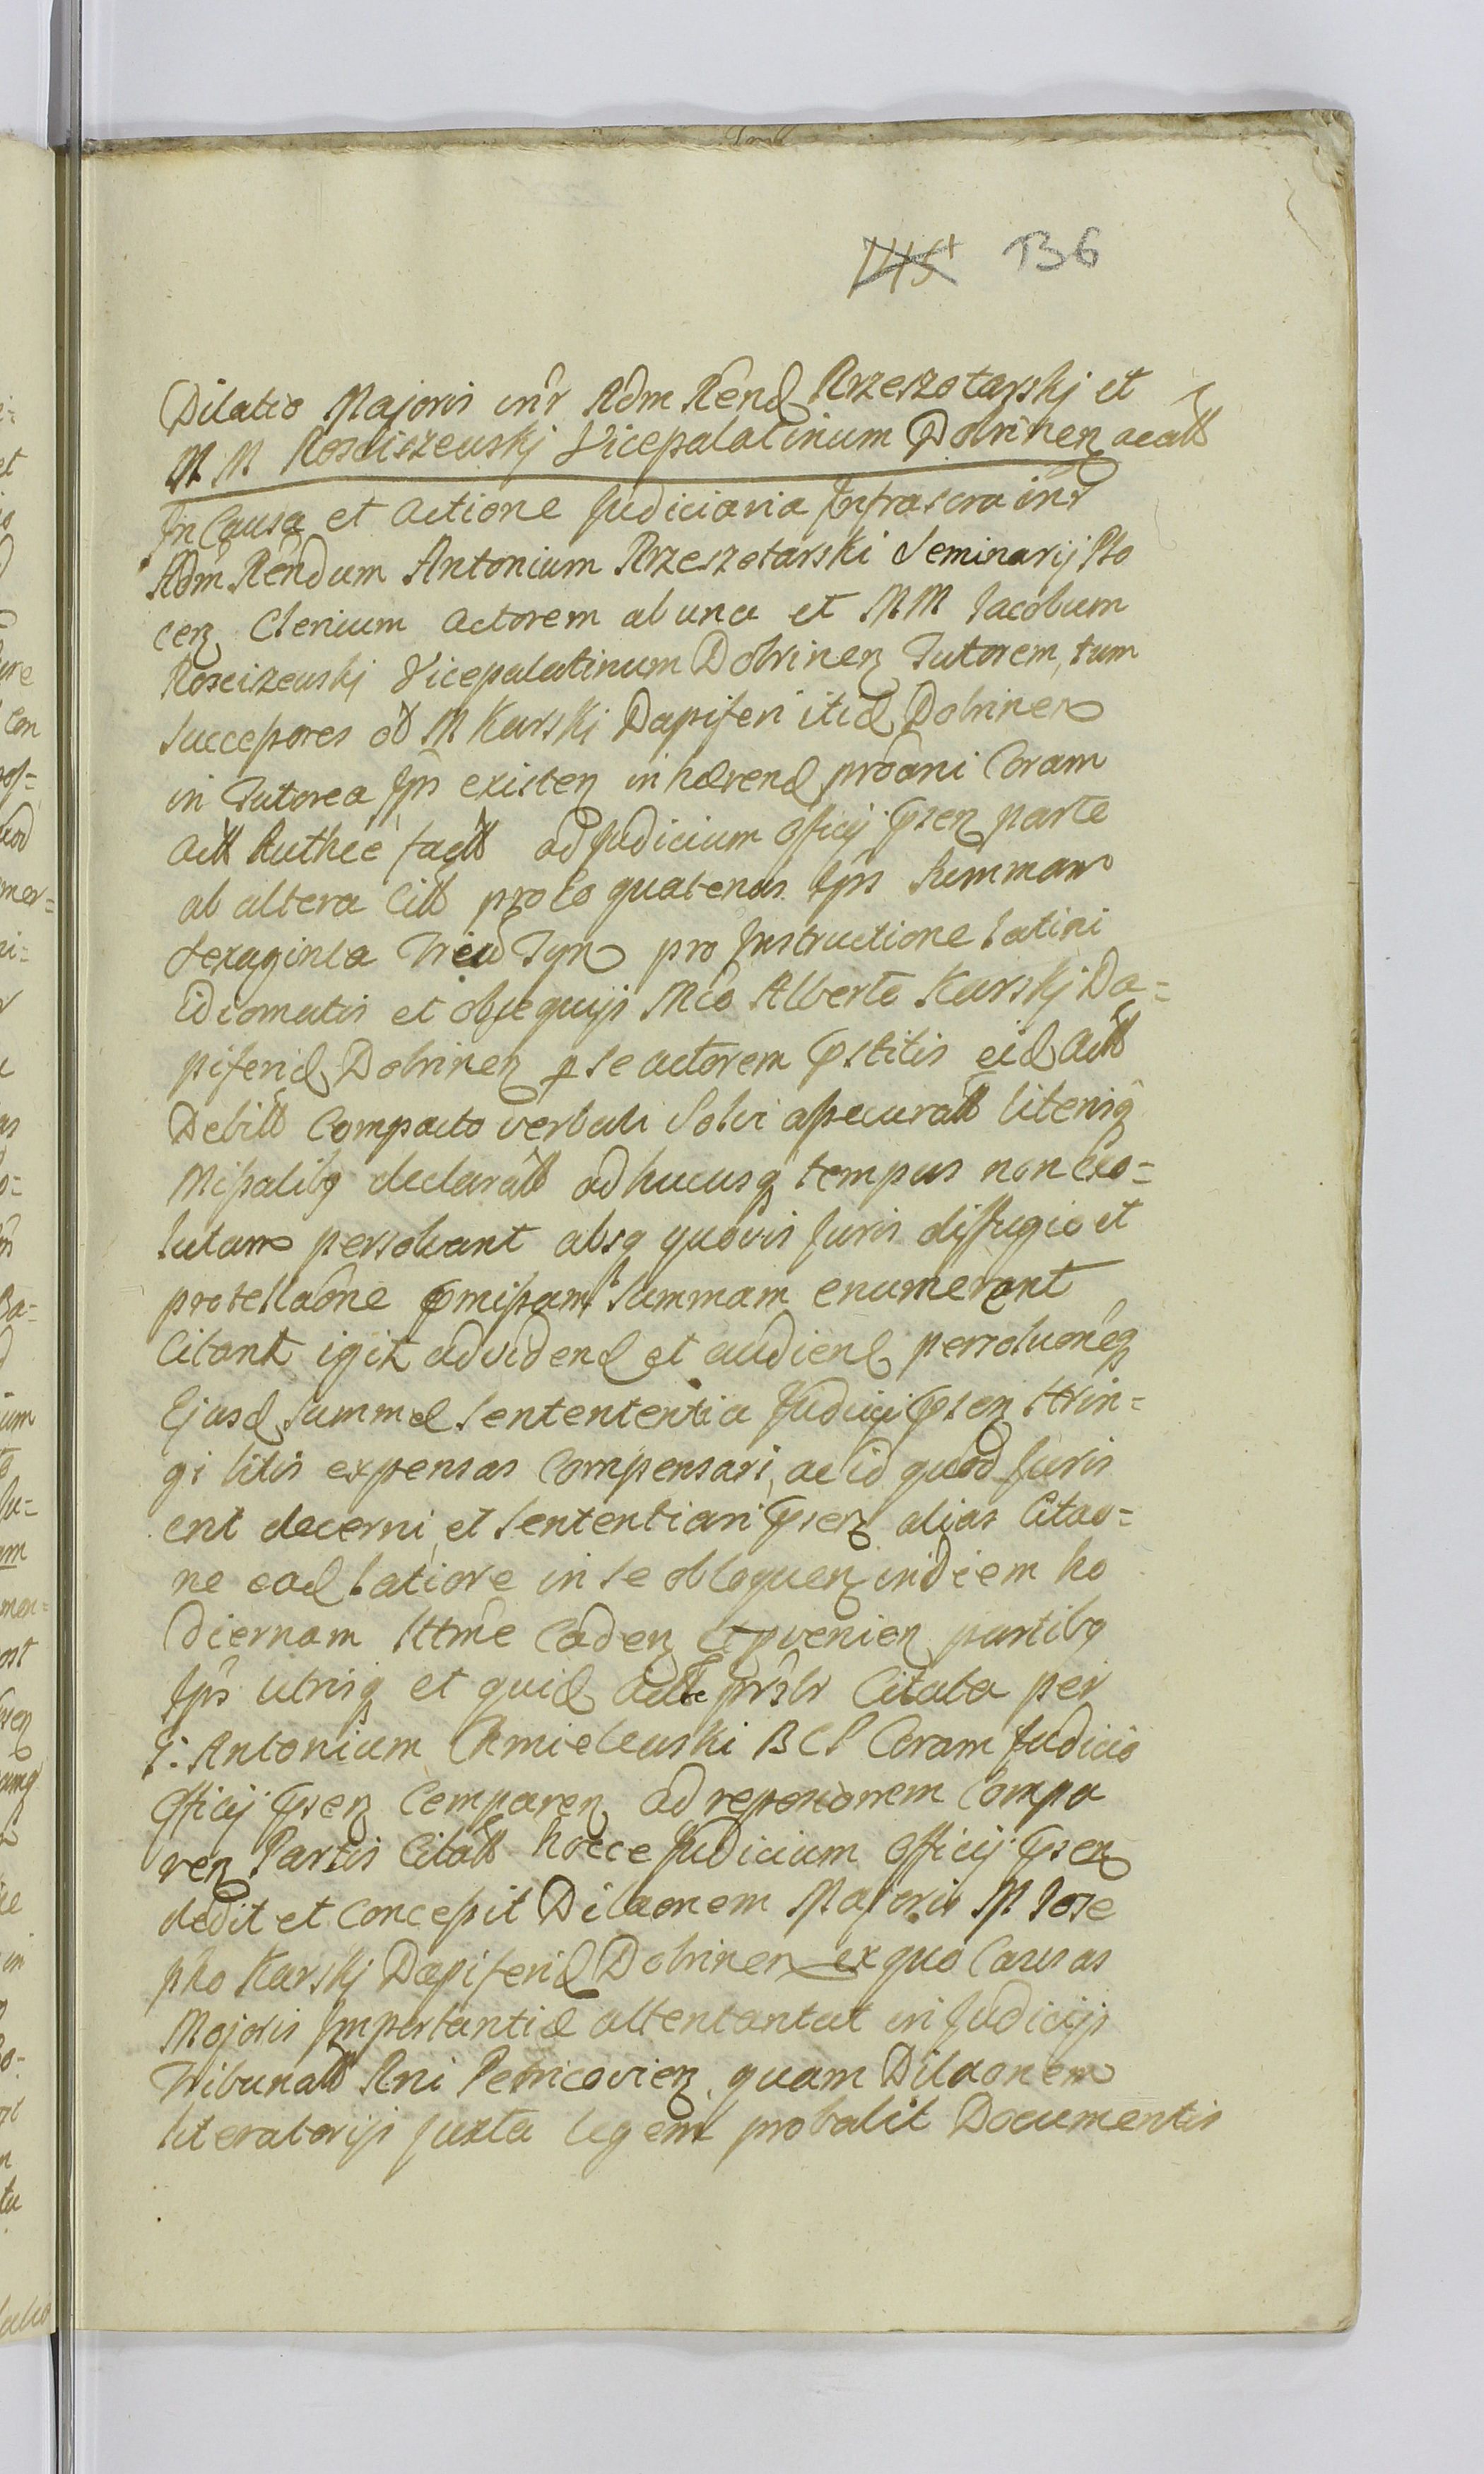 136
Dilatio Majoris intr Adm Rend Rzeszotarskj et
M M Rosciszewskj Vicepalatinum Dobrinen
In Causa et Actione Judiciaria Infrascra intr
Adm Rendum Antonium Rzeszotarski Seminarij Plo
cen Clericum Actorem ab una et MM Jacobum
Roscizewskj Vicepalatinum Dobrinen Tutorem, tum
Successores M Karskj Dapiferi itid Dobrinen
in Tutorea Ips existen inhærend Coram
Actt Authce factt ad Judicium Officij psen parte
ab altera Citt pro eo quatenus Ips Summam
Sexaginta Tyn pro Instructione latini
Idiomatis et obsequijs Mco Alberto Karskj Da=
piferid Dobrinen p se actorem pstitis eid Actt
Debitt Compacto verbali Solvi assecuratt literisq
Missalibq declaratt ad hucusq tempus non exo=
lutam persolvant absq quovis Juris diffugio et
protellaone pmissam Summam enumerant
Citant igitt ad vidend et audiend persoluoneq
Ejusd Summæ Sentententia Judicij psen strin=
gi litis expensas Compensari, ac id quod Juris
erit decerni, et Sententiari psen alias Citao=
ne ead latiore in se obloquen in diem ho
diernam Caden et pvenien partibq
Ips utrisq et quid Actt Citata per
G: Antonium Chmielewski B C P Coram Judicio
Officij psen Comparen ad Compa
ren Partis Citatt hocce Judicium Officij psen
dedit et Concepit Dilaonem Majoris M Jose
pho Karskj Dapiferid Dobrinen ex quo Causas
Majoris Importantiæ attentantut in Judicijs
Tribunatt Rni Petricovien quam Dilaonem
literatorijs Juxta legem probabit Documentis